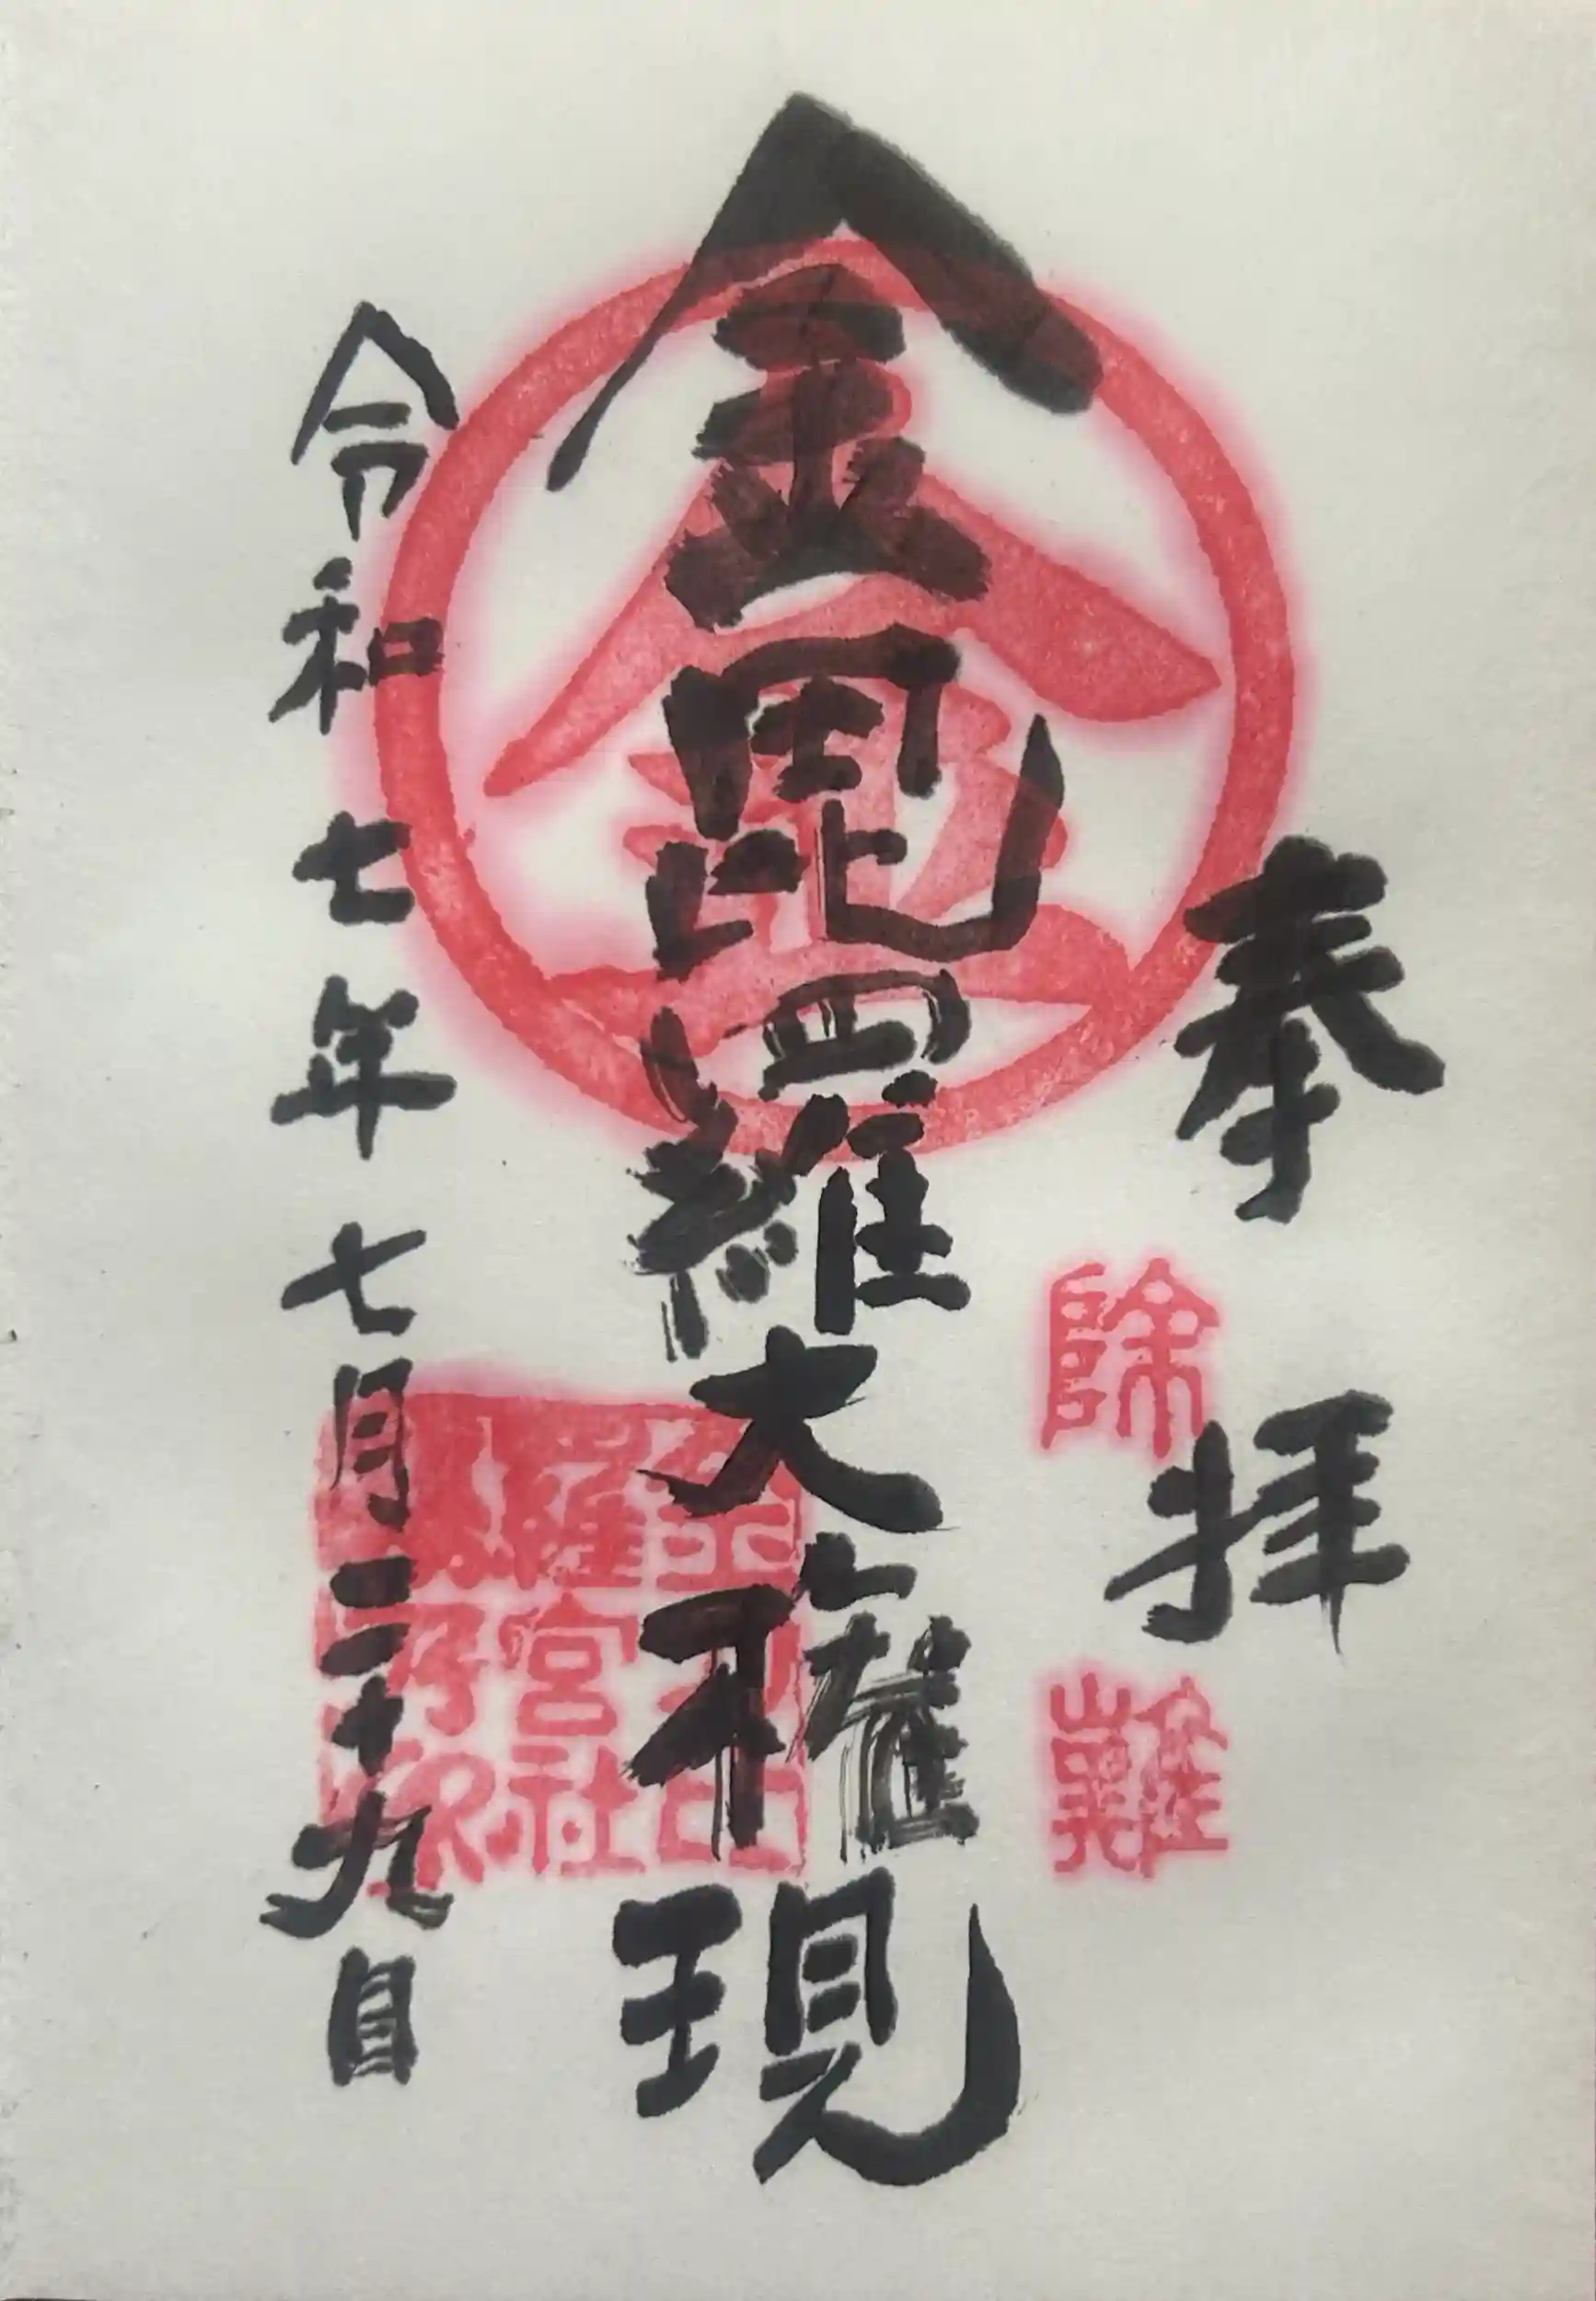 奉拝
除
難
金
金毘羅大権現
羅宮社
令和七年七月二十九日